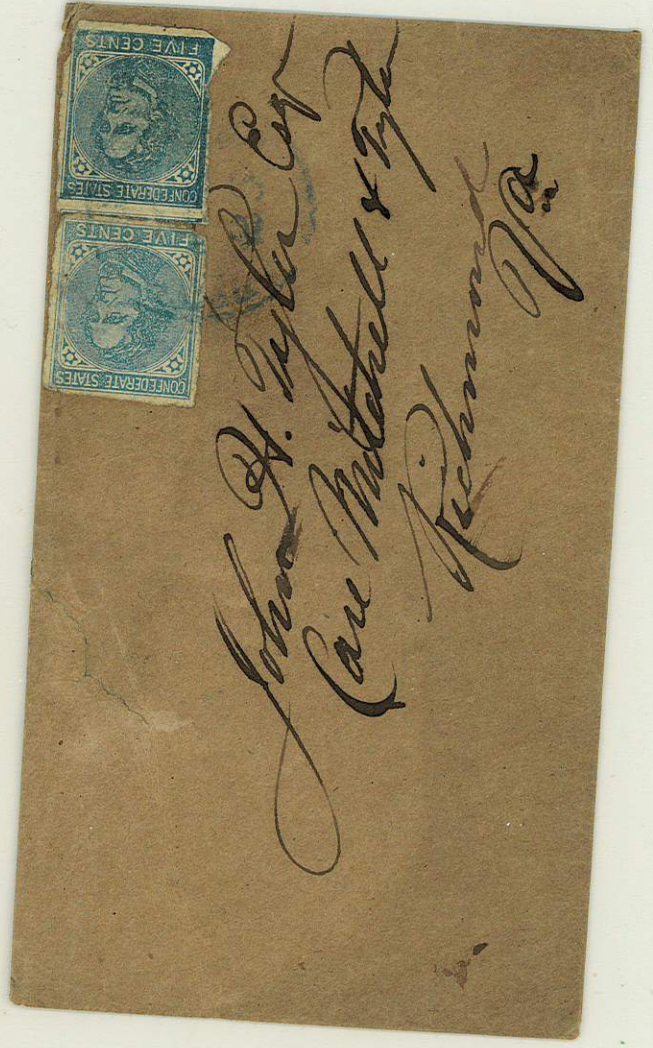 CONFEDERATE STATES
FIVE CENTS
CONFEDERATE STATES
FIVE CENTS
John H. Tyler Esqr
Care Mitchell & Tyler
Richmond
Va